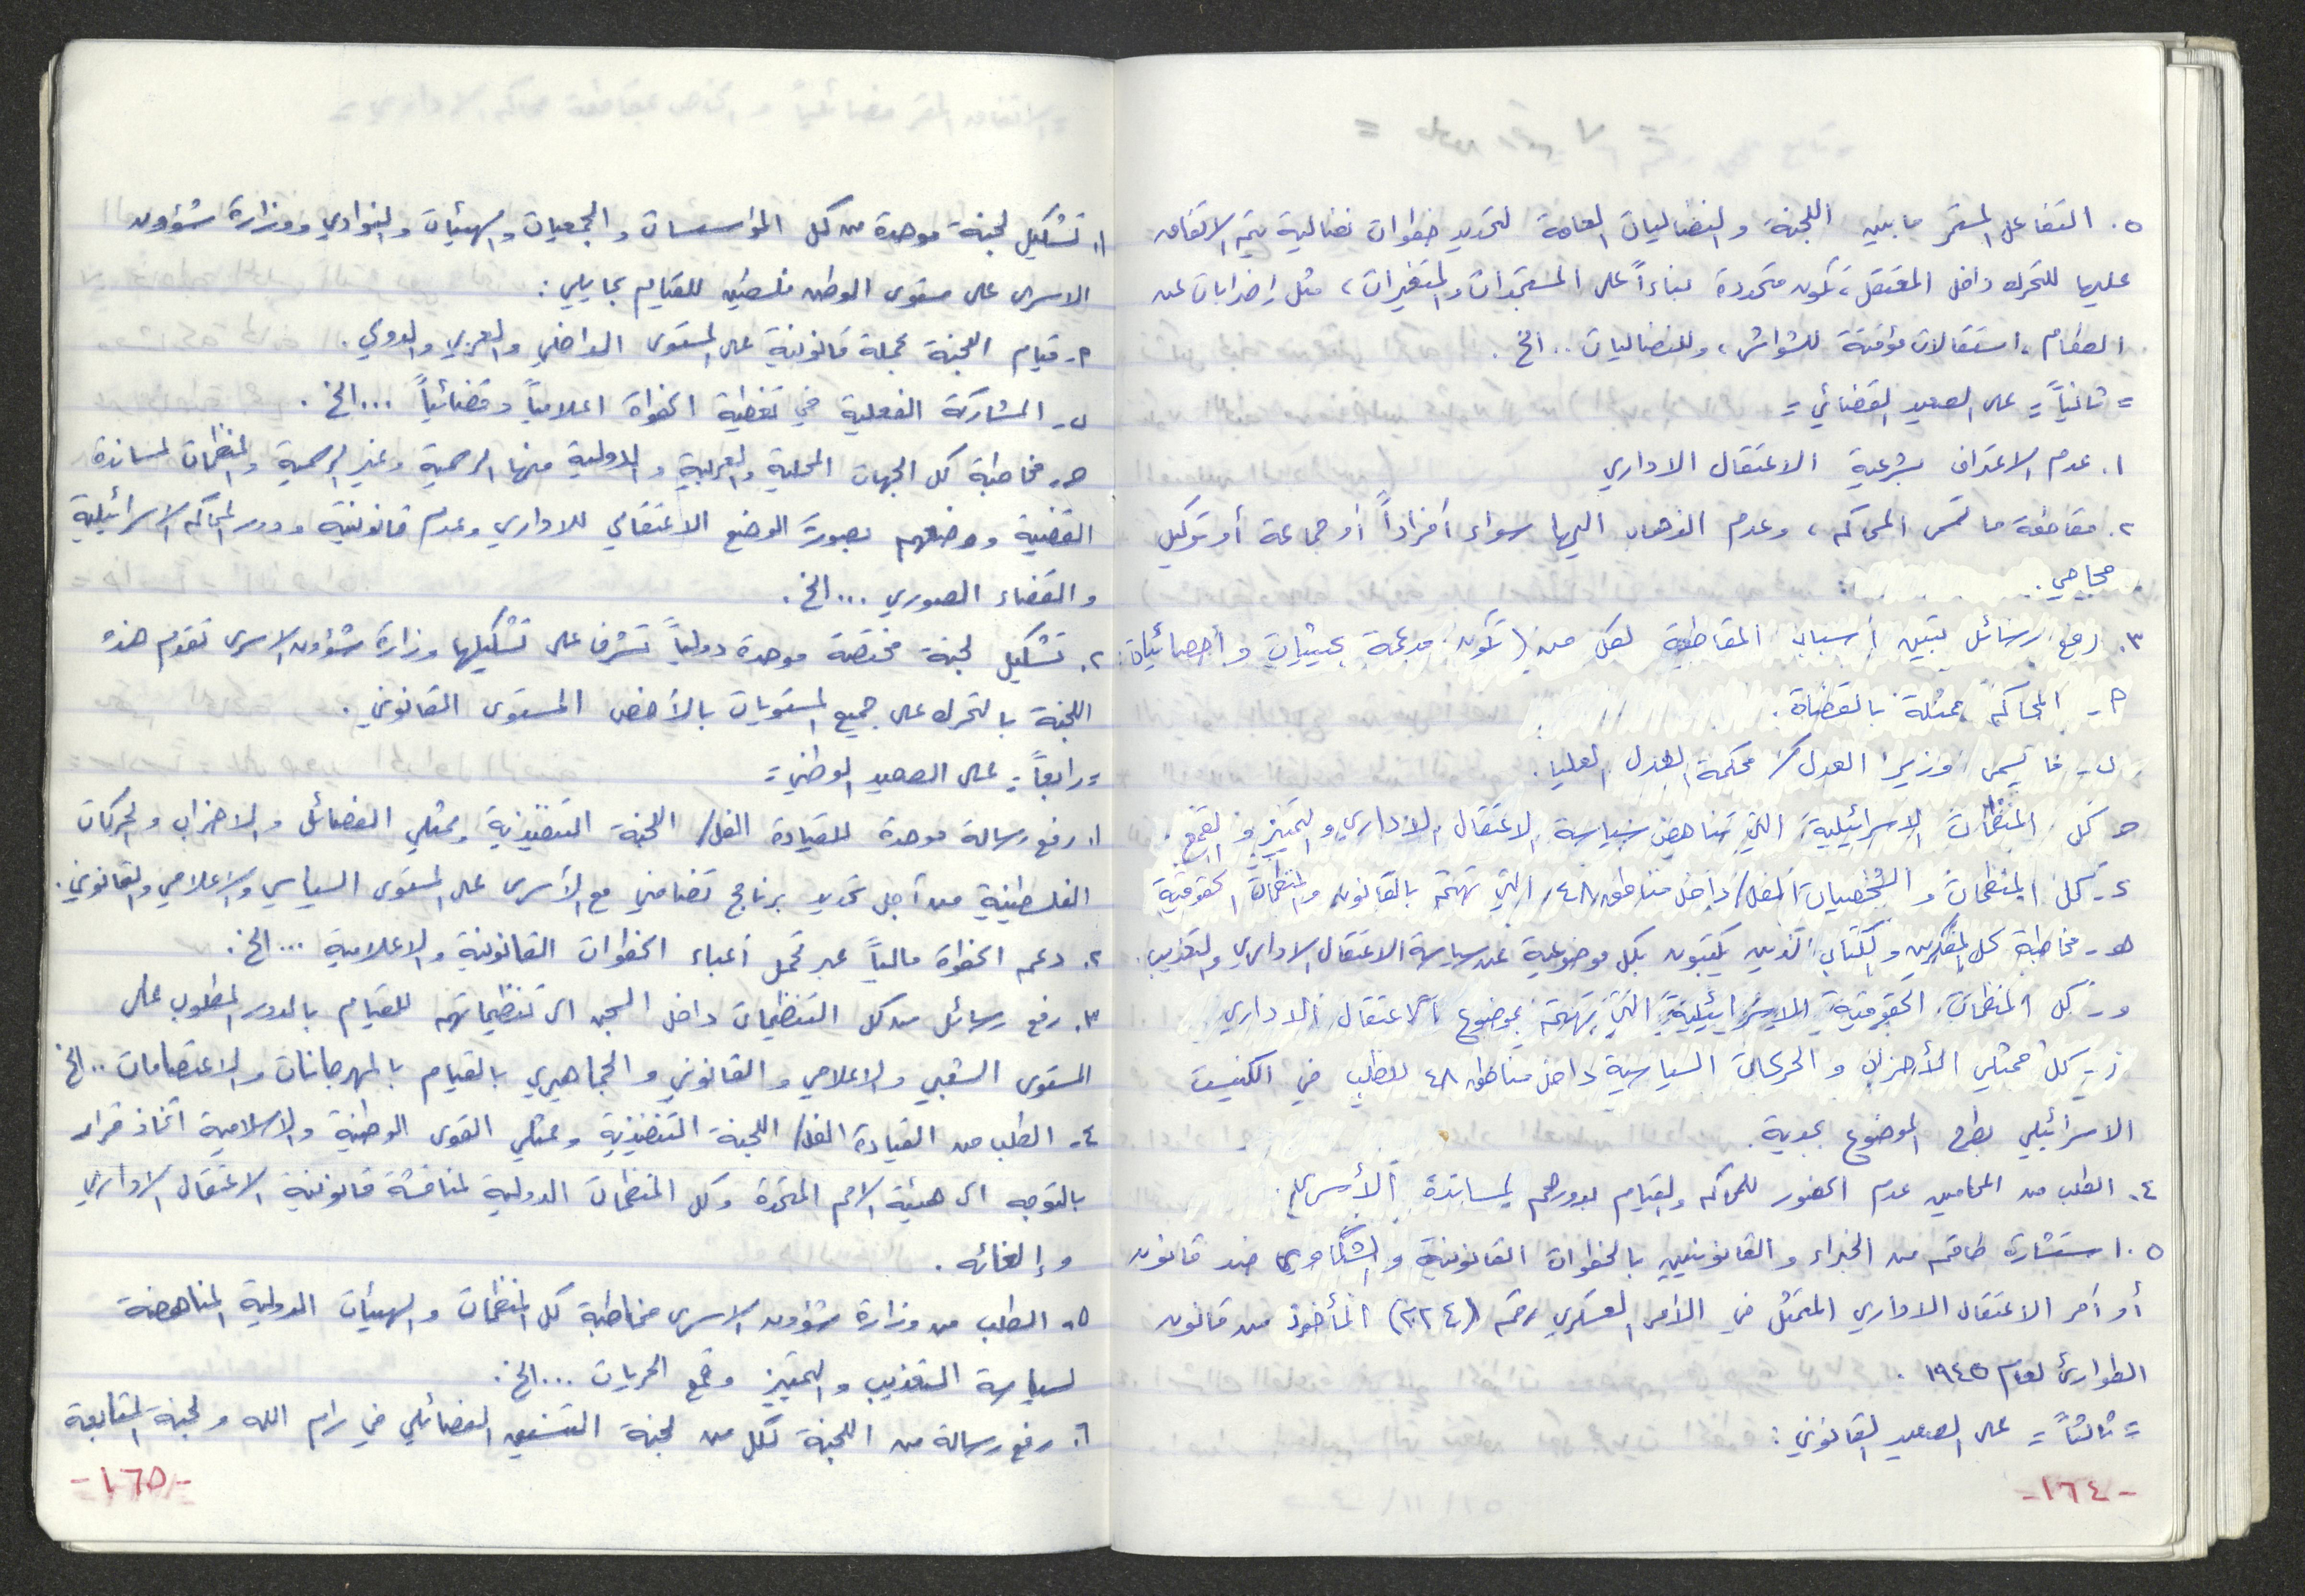 ٥. التفاعل المستمر ما بين اللجنة والنضاليات العامة لتحديد خطوات نضالية يتم الاتفاق
عليها للتحرك داخل المعتقل، تكون متحددة بناءاً على المستجدات والمتغيرات، مثل إضرابات عن
الطعام، استقالات مؤقتة للشواش، وللنضاليات .. الخ.
= ثانياً = على الصعيد القضائي =
١. عدم الاعتراف بشرعية الاعتقال الاداري
٢. مقاطعة ما تسمى المحاكم، وعدم الذهاب اليها سواء أفراداً أو جماعة أو توكيل
محامي.
٣. رفع رسائل تبين أسباب المقاطعة لكل من (تكون مدعمة بحيثيات وأحصائيات:
٩- المحاكم ممثلة بالقضاة.
ب- ما يسمى وزير العدل / محكمة العدل العليا.
حـ كل المنظمات الاسرائيلية التي تناهض سياسة الاعتقال الاداري والتمييز والقمع.
د- كل المنظمات والشخصيات الفل/ داخل مناطق ٤٨، التي تهتم بالقانون والمنظمات الحقوقية
هـ- مخاطبة كل المفكرين والكتاب الذين يكتبون بكل موضوعية عن سياسة الاعتقال الاداري والتعذيب.
و- كل المنظمات الحقوقية الاسرائيلية التي تهتم بموضوع الاعتقال الاداري
ز- كل ممثلي الأحزاب والحركات السياسية داخل مناطق ٤٨ للطلب في الكنيست
الاسرائيلي بطرح الموضوع بجدية.
٤. الطلب من المحامين عدم الحضور للمحاكم والقيام بدورهم لمساندة الأسرى.
٥. استشارة طاقم من الخبراء والقانونيين بالخطوات القانونية والشكاوى ضد قانون
أو أمر الاعتقال الاداري المتمثل في الأمر العسكري رقم (٢٢٤) المأخوذ من قانون
الطوارئ لعام ١٩٤٥.
= ثالثاً = على الصعيد القانوني:
-١٦٤-
١. تشكيل لجنة موحدة من كل المؤسسات والجمعيات والهيئات والنوادي ووزارة شؤون
الاسرى على مستوى الوطن فلسطين للقيام بما يلي:
٩- قيام اللجنة بحملة قانونية على المستوى الداخلي والعربي والدولي.
ب- المشاركة الفعلية في تغطية الخطوة اعلامياً وقضائياً ... الخ.
حـ- مخاطبة كل الجهات المحلية والعربية والدولية منها الرسمية وغير الرسمية والمنظمات لمساندة
القضية ووضعهم بصورة الوضع الاعتقالي للاداري وعدم قانونية ودور المحاكم الاسرائيلية
والقضاء الصوري ... الخ.
٢. تشكيل لجنة مختصة موحدة دولياً تشرف على تشكيلها وزارة شؤون الاسرى تقوم هذه
اللجنة بالتحرك على جميع المستويات بالأخص المستوى القانوني.
= رابعاً = على الصعيد الوطني =
١. رفع رسالة موحدة للقيادة الفل/ اللجنة التنفيذية وممثلي الفصائل والاحزاب والحركات
الفلسطينية من أجل تحديد برنامج تضامني مع الأسرى على المستوى السياسي والاعلامي والقانوني.
٢. دعم الخطوة مالياً عبر تحمل أعباء الخطوات القانونية والاعلامية ... الخ.
٣. رفع رسائل من كل التنظيمات داخل السجن الى تنظيماتهم للقيام بالدور المطلوب على
المستوى الشعبي والاعلامي والقانوني والجماهيري بالقيام بالمهرجانات والاعتصامات .. الخ
٤. الطلب من القيادة الفل/ اللجنة التنفيذية وممثلي القوى الوطنية والاسلامية اتخاذ قرار
بالتوجه الى هيئة الامم المتحدة وكل المنظمات الدولية لمناقشة قانونية الاعتقال الاداري
وإلغائه.
٥. الطلب من وزارة شؤون الاسرى مخاطبة كل المنظمات والهيئات الدولية المناهضة
لسياسة التعذيب والتمييز وقمع الحريات ... الخ.
٦. رفع رسالة من اللجنة لكل من لجنة التنسيق الفصائلي في رام الله ولجنة المتابعة
-١٦٥-